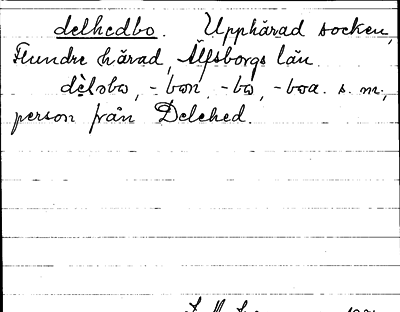 delhedbo. Upphärad socken,
Flundre härad, Älfsborgs län.
dèlsbω, -bωn, -bω, -bωa. s. m.,
person från Delehed.